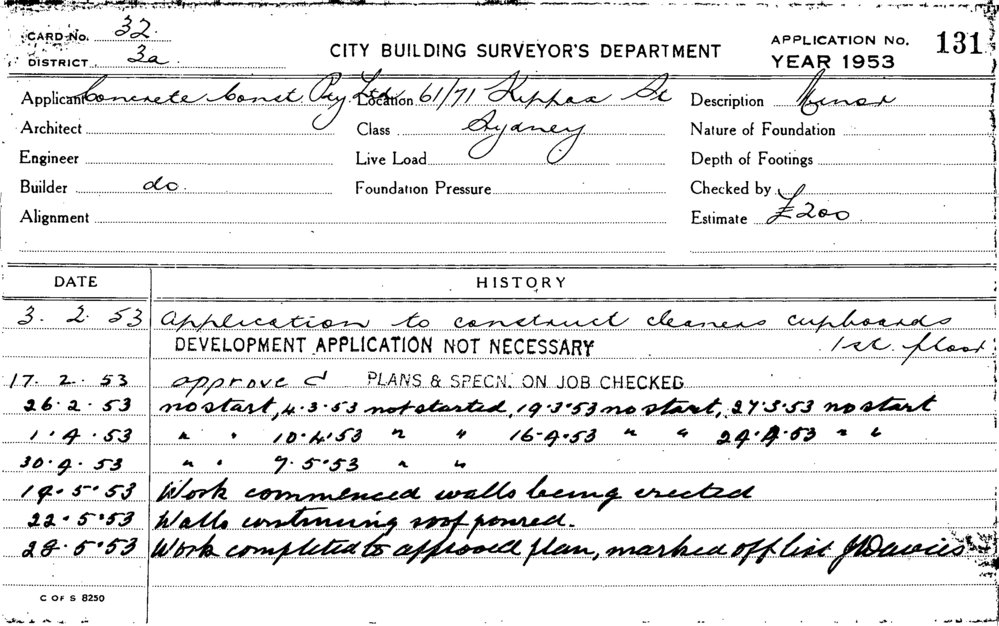 CARD No. 32.
DISTRICT 3a
CITY BUILDING SURVEYOR'S DEPARTMENT
APPLICATION No. 131
YEAR 1953
Applicant Concrete Const. Pty Ltd Location 61/71 Kippax St Description Minor
Architect Class Sydney Nature of Foundation
Engineer Live Load Depth of Footings
Builder do. Foundation Pressure Checked by
Alignment Estimate £200
DATE HISTORY
3. 2. 53 Application to construct cleaners cupboards
DEVELOPMENT APPLICATION NOT NECESSARY 1st. floor
17. 2. 53 approved PLANS & SPECN. ON JOB CHECKED
26.2.53 no start, 4.3.53 not started, 19.3.53 no start, 27.3.53 no start
1.4.53 " " 10.4.53 " " 16.4.53 " " 24.4.53 " "
30.4.53 " " 7.5.53 " "
14.5.53 Work commenced walls being erected
22.5.53 Walls continuing roof poured.
28.5.53 Work completed to approved plan, marked off list J Davies
C OF S 8250